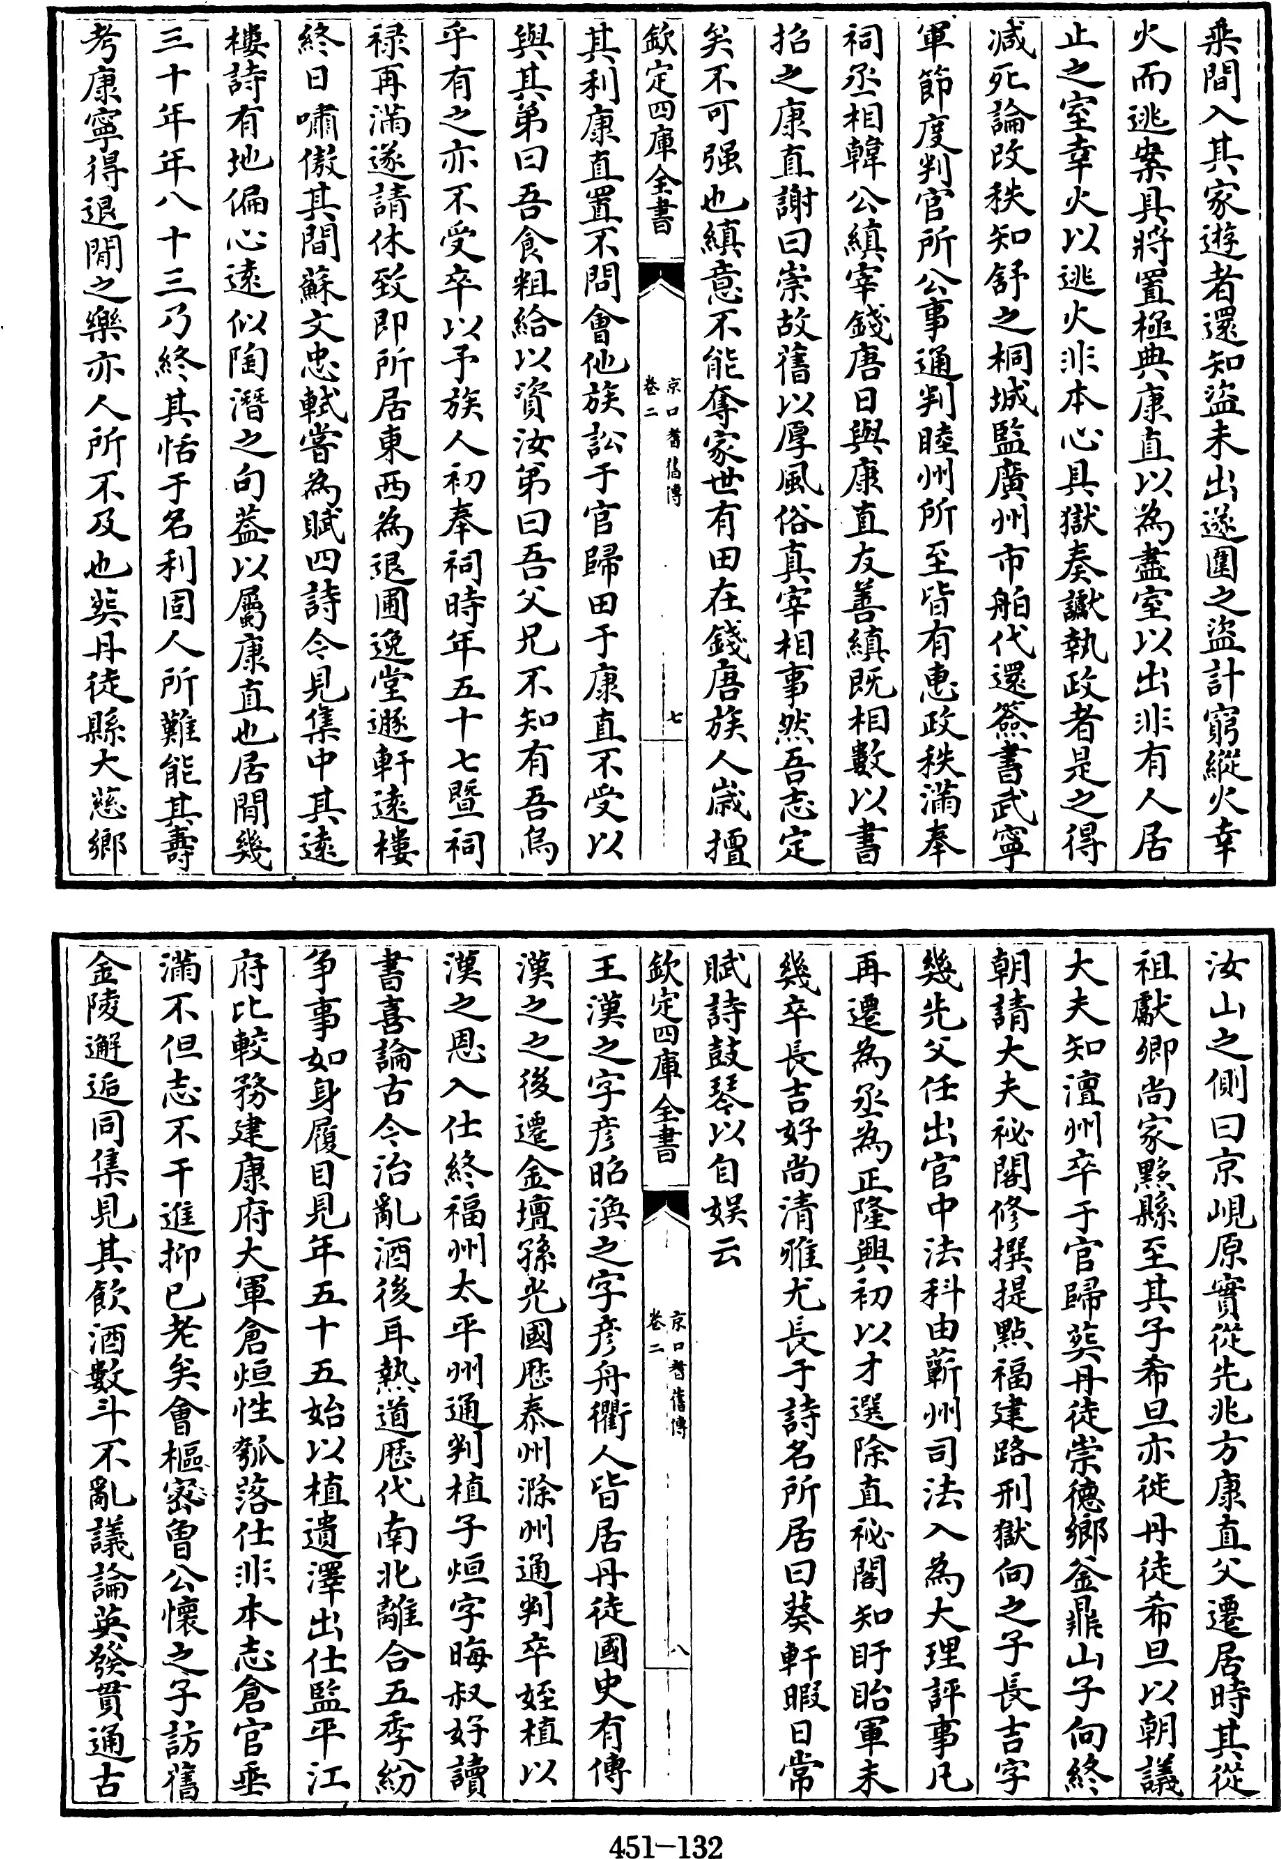 乗間入其家遊者還知盜未出遂圍之盜計窮縱火幸
火而逃案具將置極典康直以為盡室以出非有人居
止之室幸火以逃火非本心具獄奏讞執政者是之得
減死論改秩知舒之桐城監廣州市舶代還簽書武寧
軍節度判官所公事通判睦州所至皆有恵政秩滿奉
祠丞相韓公縝宰錢唐日與康直友善縝既相數以書
招之康直謝曰崇故舊以厚風俗真宰相事然吾志定
矣不可强也縝意不能奪家世有田在錢唐族人歳擅
欽定四庫全書
京口耆舊傳
卷二
七
其利康直置不問會他族訟于官歸田于康直不受以
與其弟曰吾食粗給以資汝弟曰吾父兄不知有吾烏
乎有之亦不受卒以予族人初奉祠時年五十七暨祠
禄再滿遂請休致即所居東西為退圃逸堂遯軒遠樓
終日嘯傲其間蘇文忠軾嘗為賦四詩今見集中其遠
樓詩有地偏心遠似陶潛之句葢以屬康直也居閒幾
三十年年八十三乃終其恬于名利固人所難能其壽
考康寧得退閒之樂亦人所不及也葬丹徒縣大慈鄉
汝山之側曰京峴原實從先兆方康直父遷居時其從
祖獻卿尚家黟縣至其子希旦亦徙丹徒希旦以朝議
大夫知澶州卒于官歸葬丹徒崇德鄉釜鼎山子向終
朝請大夫祕閣修撰提點福建路刑獄向之子長吉字
幾先父任出官中法科由蘄州司法入為大理評事凡
再遷為丞為正隆興初以才選除直祕閣知盱眙軍未
幾卒長吉好尚清雅尤長于詩名所居曰葵軒暇日常
賦詩鼓琴以自娱云
欽定四庫全書
京口耆舊傳
卷二
八
王漢之字彦昭渙之字彦舟衢人皆居丹徒國史有傳
漢之之後遷金壇孫光國歴泰州滁州通判卒姪植以
漢之恩入仕終福州太平州通判植子烜字晦叔好讀
書喜論古今治亂酒後耳熱道歴代南北離合五季紛
争事如身履目見年五十五始以植遺澤出仕監平江
府比較務建康府大軍倉烜性瓠落仕非本志倉官垂
滿不但志不干進抑已老矣會樞密曽公懷之子訪舊
金陵邂逅同集見其飲酒數斗不亂議論英發貫通古
451-132